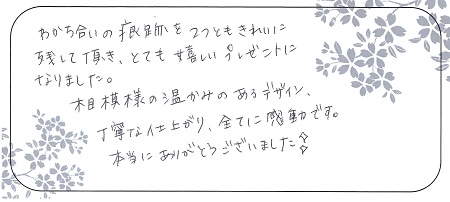 わかち合いの痕跡を2つともきれいに
残して頂き、とても嬉しいプレゼントに
なりました。
木目模様の温かみのあるデザイン、
丁寧な仕上がり、全てに感動です。
本当にありがとうございました